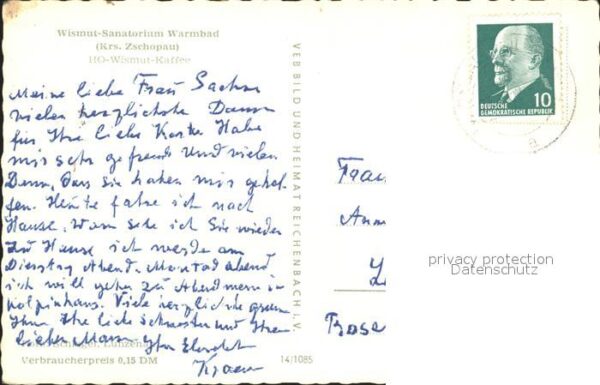 Wismut-Sanatorium Warmbad
(Krs. Zschopau)
HO-Wismut-Kaffee
Meine liebe Frau Sachse
vielen herzlichste Dann
für Ihre liebe Karte Habe
mir sehr gefreud Und vielen
Denn, das sie haben mir gehol-
fen. Heute fahre ich nach
Hause, Wan sehe ich Sie wieder
zu Hause ich werde am
Dienstag Abend. Montag abend
ich will gehen zu Abend in
Kolpinhaus. Viele herzliche
Ihnen Ihre liebe Schwester und Ihren
lieben Mann
Verbraucherpreis 0,15 DM
14/1085
VEB BILD UND HEIMAT REICHENBACH I. V.
10
DEUTSCHE
DEMOKRATISCHE REPUBLIK
Frau
privacy protection
Datenschutz